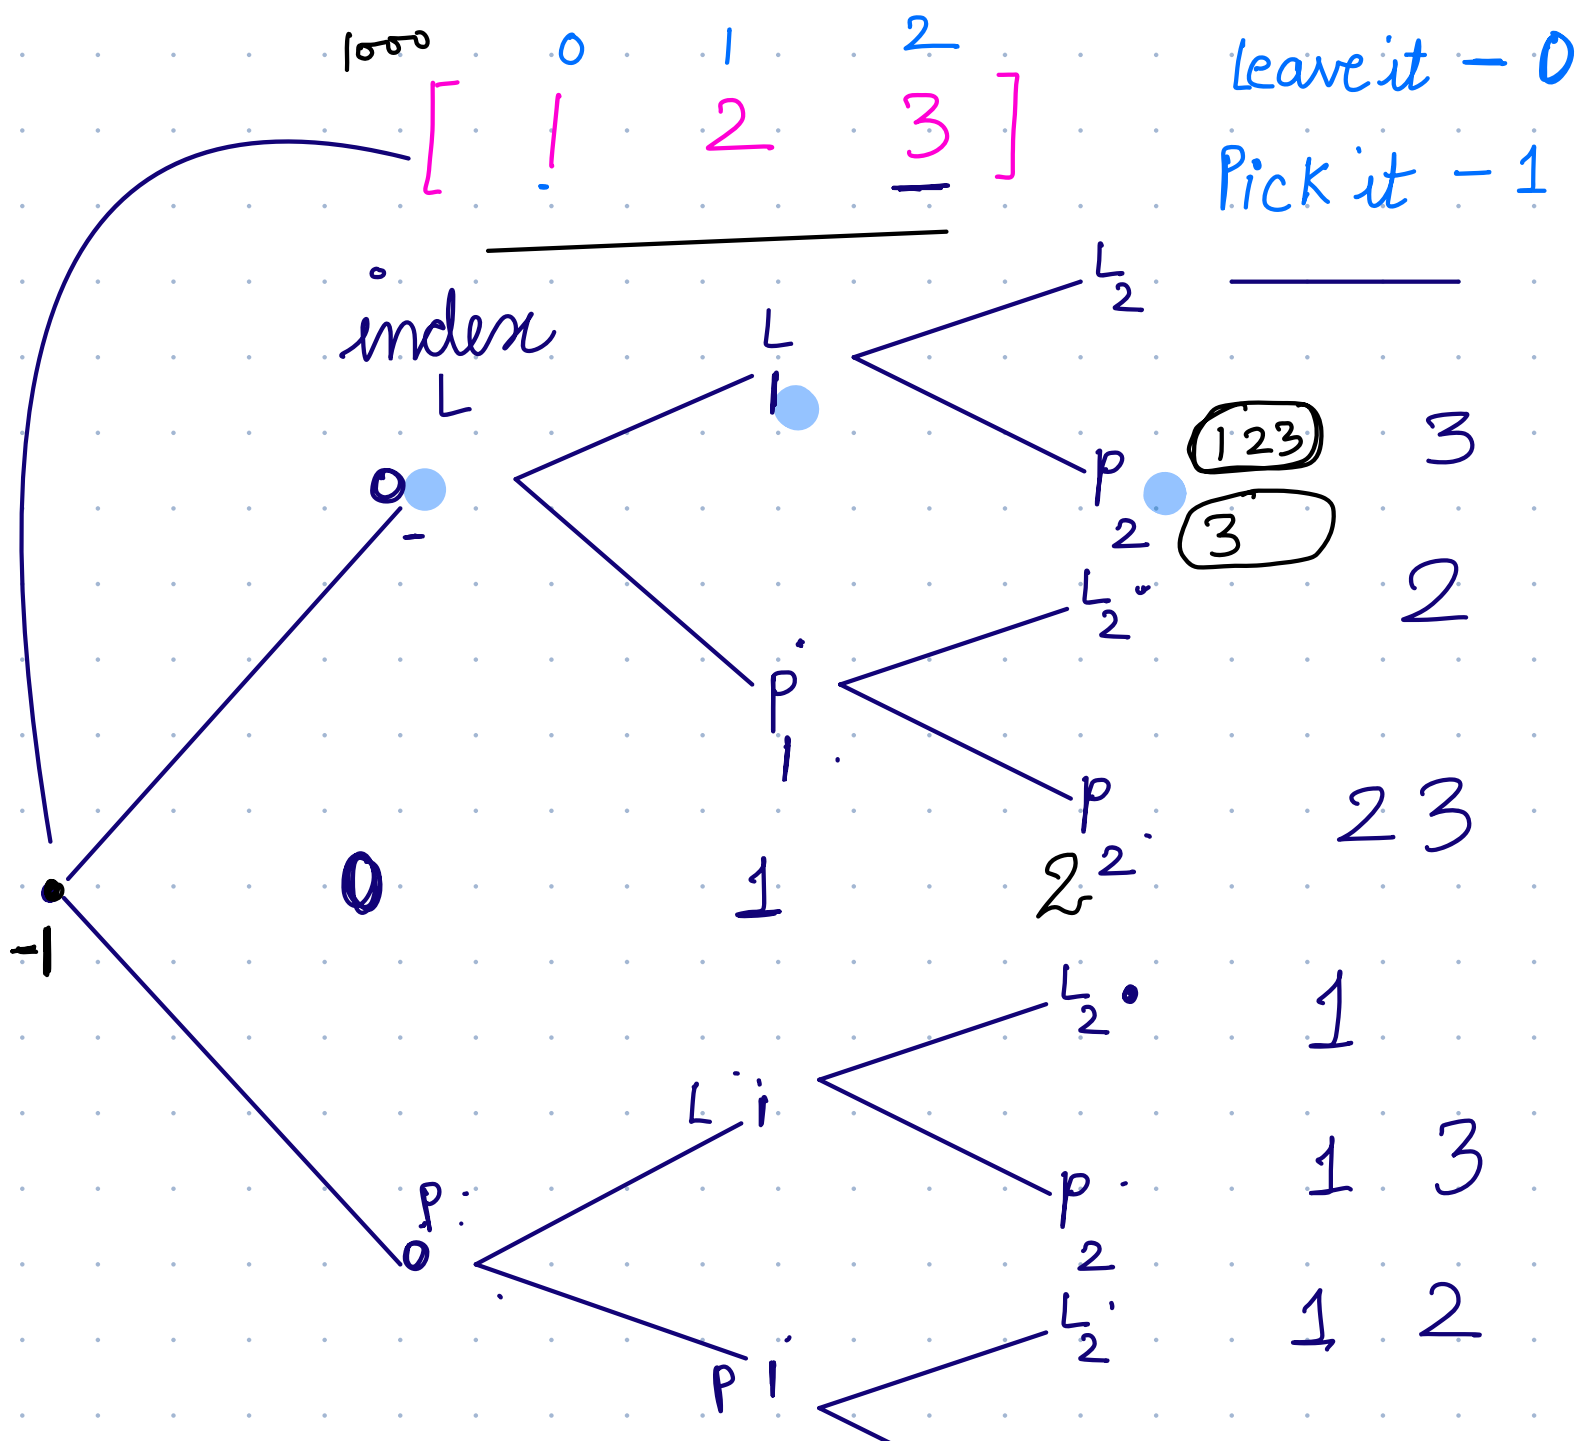 1000 0 1 2
[ 1 2 3 ]
Leave it - 0
Pick it - 1
index
L
0
L
1
L
2
P
2
123
3
3
L
2
2
P
1
P
2
2 3
-1
0 1 2
L
2
1
L 1
P
2
1 3
P
0
L
2
1 2
P 1